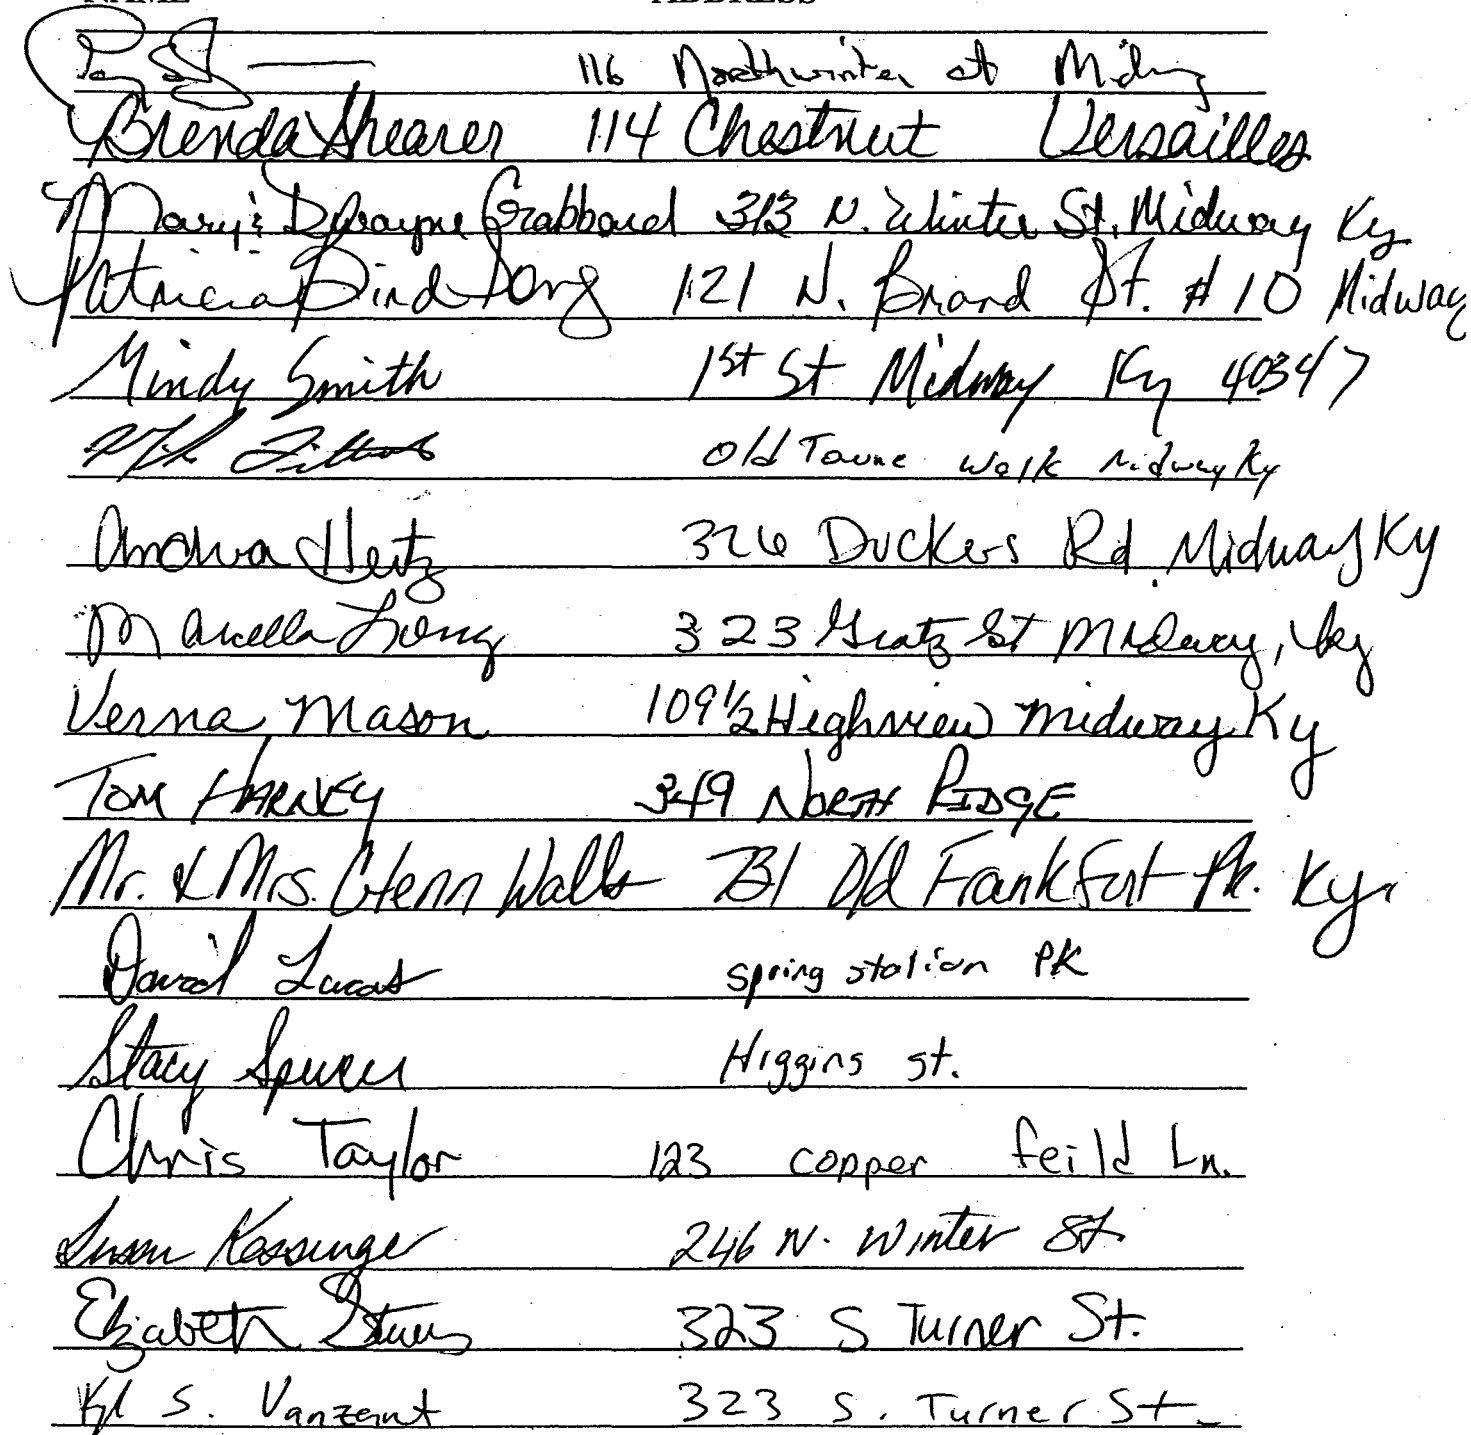 NAME ADDRESS
116 Northwinter st Midway
Brenda Shearer 114 Chestnut Versailles
Mary & Dwayne Grabbard 313 N. Winter St. Midway Ky
Patricia Bird Long 121 N. Broad St. #10 Midway
Mindy Smith 1st St Midway Ky 40347
Old Towne Walk Midway Ky
326 Duckers Rd. Midway Ky
Marcella Long 323 Gratz St Midway, Ky
Verna Mason 109 1/2 Highview Midway Ky
TOM HARNEY 349 NORTH RIDGE
Mr. & Mrs. Glenn Walls Old Frankfort Pk. Ky.
David Lucas spring station PK
Stacy Higgins st.
Chris Taylor 123 copper feild Ln.
Susan 246 N. Winter St
Elizabeth 323 S Turner St.
S. Vanzant 323 S. Turner St.